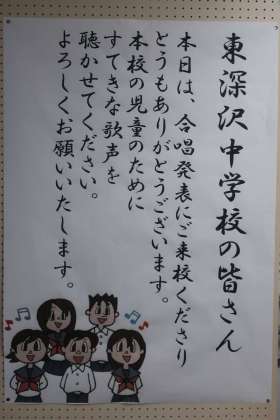 東深沢中学校の皆さん
本日は、合唱発表にご来校くださり
どうもありがとうございます。
本校の児童のために
すてきな歌声を
聴かせてください。
よろしくお願いいたします。